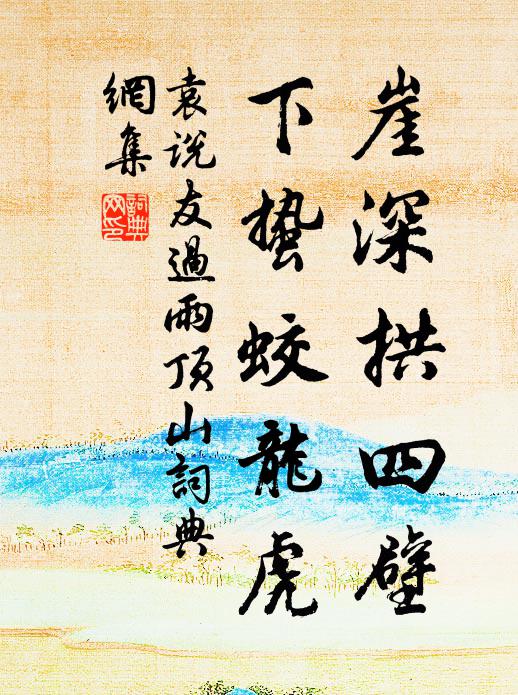 崖深拱四壁
下蛰蛟龍虎
袁说友過雨頂山詞典
網集
詞典
网印